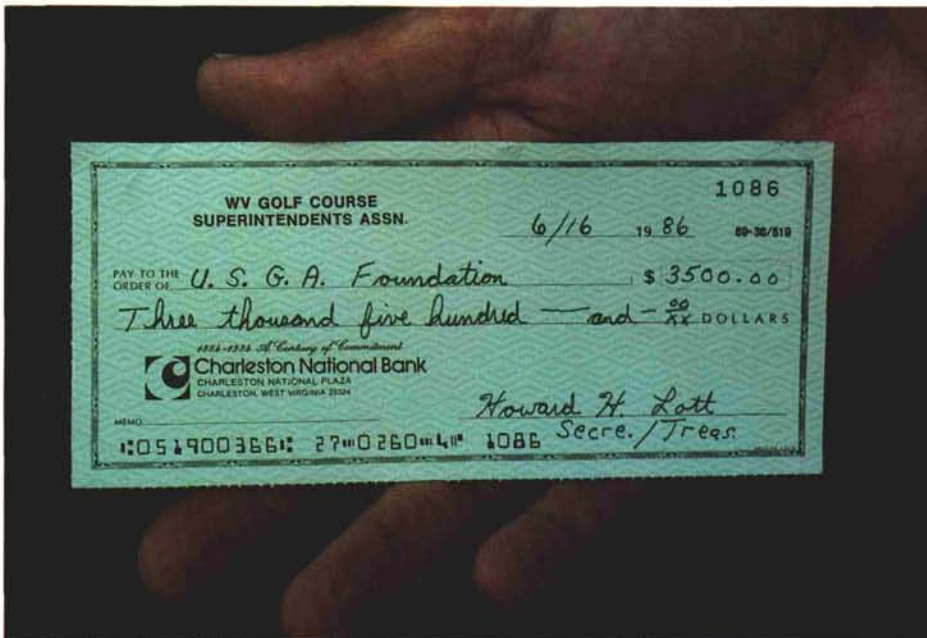 1086
WV GOLF COURSE
SUPERINTENDENTS ASSN.
6/16 19 86 69-36/519
PAY TO THE
ORDER OF U. S. G. A. Foundation $ 3500.00
Three thousand five hundred — and — 00/xx DOLLARS
1884-1984 A Century of Commitment
Charleston National Bank
CHARLESTON NATIONAL PLAZA
CHARLESTON, WEST VIRGINIA 25324
Howard H. Lott
MEMO
Secre./Treas.
⑆051900366⑆ 27⑈0260⑈4⑈ 1086